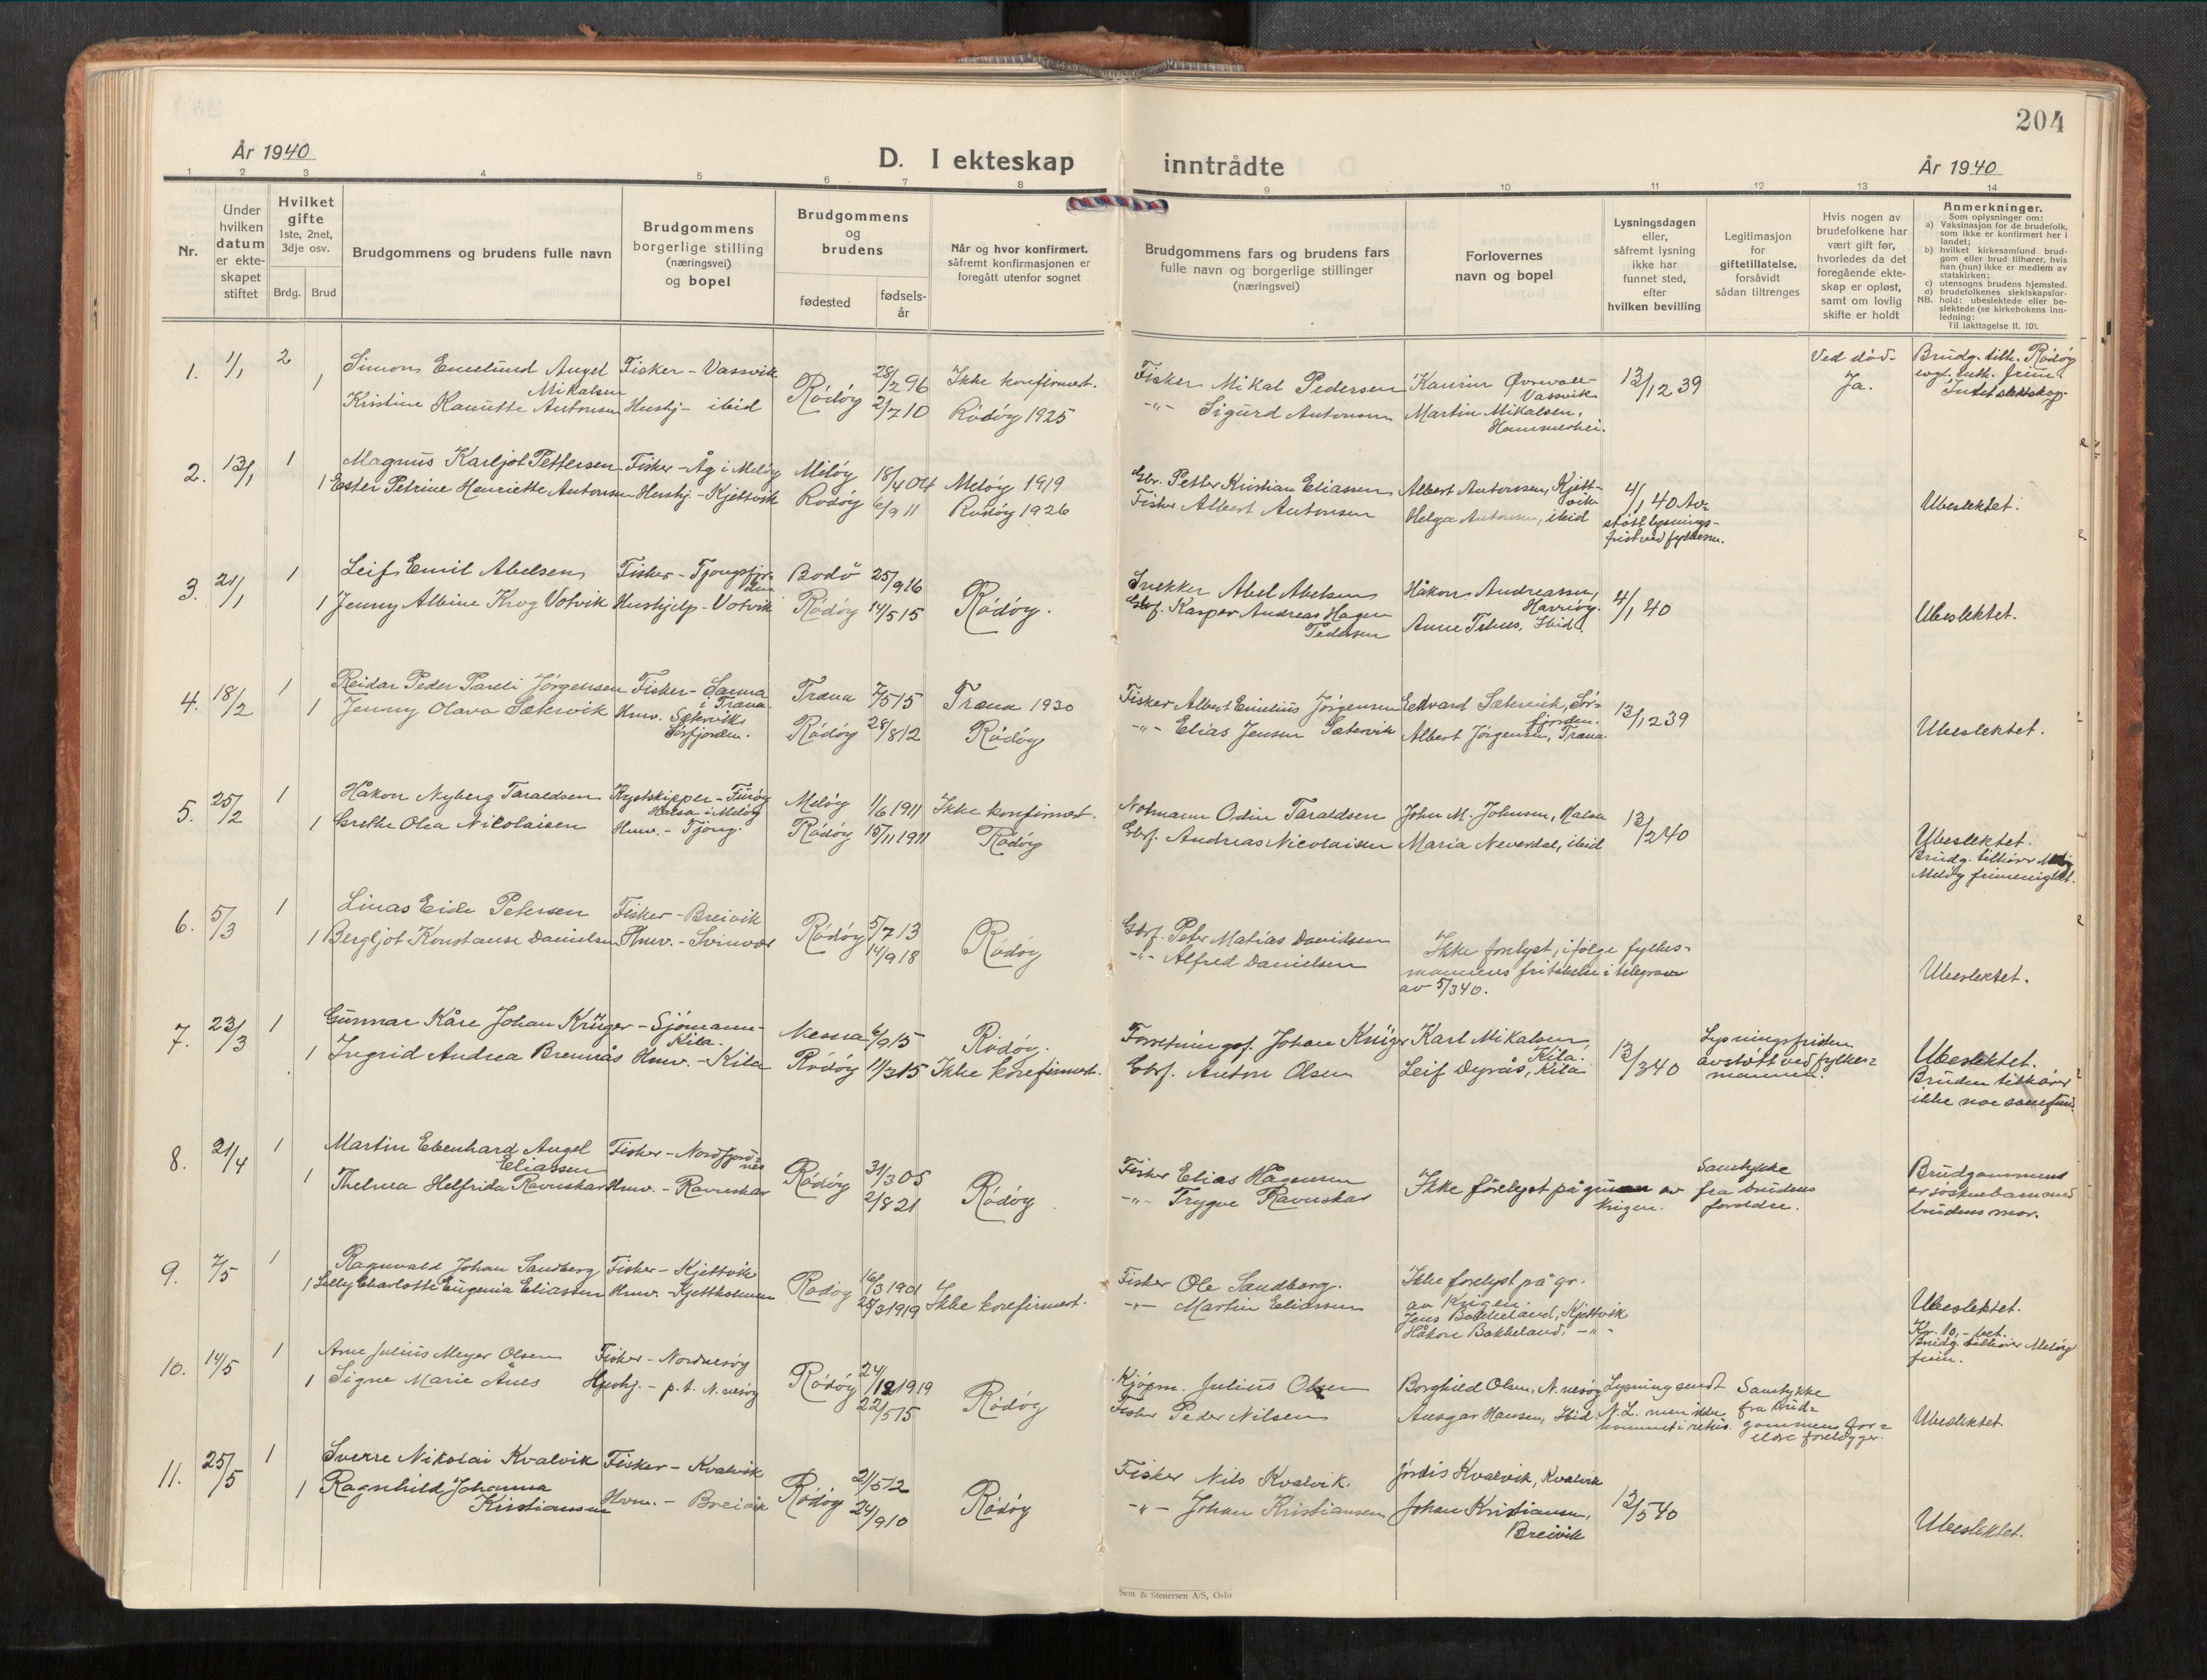 204
År 1940
D. I ekteskap inntrådte
År 1940
1 2 3 4 5 6 7 8 9 10 11 12 13 14
Nr.
Under
hvilken
datum
er ekte-
skapet
stiftet
Hvilket
gifte
1ste, 2net,
3dje osv.
Brdg. Brud
Brudgommens og brudens fulle navn
Brudgommens
borgerlige stilling
(næringsvei)
og bopel
Brudgommens
og
brudens
fødested
fødsels-
år
Når og hvor konfirmert,
såfremt konfirmasjonen er
foregått utenfor sognet
Brudgommens fars og brudens fars
fulle navn og borgerlige stillinger
(næringsvei)
Forlovernes
navn og bopel
Lysningsdagen
eller,
såfremt lysning
ikke har
funnet sted,
efter
hvilken bevilling
Legitimasjon
for
giftetillatelse,
forsåvidt
sådan tiltrenges
Hvis nogen av
brudefolkene har
vært gift før,
hvorledes da det
foregående ekte-
skap er opløst,
samt om lovlig
skifte er holdt
Anmerkninger.
Som oplysninger om:
a) Vaksinasjon for de brudefolk,
som ikke er konfirmert her i
landet;
b) hvilket kirkesamfund brud-
gom eller brud tilhører, hvis
han (hun) ikke er medlem av
statskirken;
c) utensogns brudens hjemsted.
d) brudefolkenes slektskapsfor-
NB. hold: ubeslektede eller be-
slektede (se kirkebokens inn-
ledning:
Til iakttagelse II. 10).
1. 1/1 2 Simon Emelund Angel Mikalsen Fisker - Vassvik Rödöy 28/2 96 Ikke konfirmert. Fisker Mikal Pedersen Vassvik 13/12 39 Ved död. Ja. Brudg. tilh. Rödöy
1 Kristine Kanutte Antonsen Hushj - ibid 2/7 10 Rödöy 1925 -"- Sigurd Antonsen Martin Mikalsen,
2. 13/1 1 Magnus Karljot Pettersen Fisker - Åg i Melöy Melöy 18/4 04 Melöy 1919 Gbr. Petter Kristian Eliassen Albert Antonsen, Kjett-
vik 4/1 40 Av-
1 Ester Petrine Henriette Antonsen Hushj - Kjettvik Rödöy 6/9 11 Rödöy 1926 Fisker Albert Antonsen Helga Antonsen, ibid stått lysnings-
frist ved fylkesm. Ubeslektet.
3. 21/1 1 Leif Emil Abelsen Fisker - Tjongsfjor-
den Bodö 25/9 16 Snekker Abel Abelsen Håkon Andreassen, 4/1 40
1 Jenny Albine Krog Votvik Hushjelp - Votvik Rödöy 14/5 15 Rödöy. Gbf. Kasper Andreas Hagen
Pedersen Ibid. Ubeslektet.
4. 18/2 1 Reidar Peder Pareli Jörgensen Fisker - Sanna
i Træna. Træna 7/5 15 Træna 1930 Fisker Albert Emelius Jörgensen Edvard Sætervik, Sör-
fjorden. 13/12 39
1 Jenny Olava Sætervik Hmv. Sætervik
Sörfjorden. Rödöy 28/8 12 Rödöy -"- Elias Jensen Sætervik Albert Jörgensen, Træna Ubeslektet.
5. 25/2 1 Håkon Nyberg Taraldsen Kystskipper - Furöy
Halsa i Melöy Melöy 1/6 1911 Ikke konfirmert. Notmann Odin Taraldsen John M. Johnsen, Halsa 13/2 40
1 Grethe Olea Nikolaisen Hmv. - Tjong. Rödöy 15/11 1911 Rödöy Gbf. Andreas Nicolaisen Maria Neverdal, ibid Ubeslektet.
Brudg. tilhörer
Melöy frimenighet.
6. 5/3 1 Linas Eide Petersen Fisker - Breivik Rödöy 5/7 13 Rödöy Gbf. Peter Matias Davidsen Ikke forelyst, ifölge fylkes-
1 Bergljot Konstanse Danielsen Hmv. - Svinvær 14/9 18 -"- Alfred Danielsen mannens fritakelse i telegram
av 5/3 40. Ubeslektet.
7. 23/3 1 Gunnar Kåre Johan Krüger - Sjömann -
Kila. Nesna 6/9 15 Rödöy. Forretningsf. Johan Krüger Karl Mikalsen,
Kila. 13/3 40 Lysningsfristen
1 Ingrid Andrea Brennås Hmv. - Kila Rödöy 11/3 15 Ikke konfirmert. Gbf. Anton Olsen Leif Dyrås, Kila avstått ved fylkes-
mannen. Ubeslektet.
Bruden tilhörer
ikke noe samfund
8. 21/4 1 Martin Ebenhard Angel
Eliassen Fisker - Nordfjord-
nes Rödöy 31/3 05 Rödöy Fisker Elias Hågensen Ikke forelyst på grunn av
krigen. Samtykke
fra brudens
foreldre. Brudgommen
er söskenbarn med
brudens mor.
1 Thelma Helfrida Ravnskar Hmv. - Ravnskar 2/8 21 -"- Trygve Ravnskar
9. 7/5 1 Ragnvald Johan Sandberg Fisker - Kjettvik Rödöy 16/3 1901 Fisker Ole Sandberg. Ikke forelyst på gr.
av krigen.
1 Lilly Charlotte Eugenia Eliassen Hmv. - Kjettholmen 25/3 1919 Ikke konfirmert. -"- Martin Eliassen Jens Bakkeland, Kjettvik
Håkon Bakkeland, -"- Ubeslektet.
Kr. 10,- bet.
Brudg. tilhörer Melöy
frim.
10. 14/5 1 Arne Julius Meyer Olsen Fisker - Nordnesöy Rödöy 24/12 1919 Rödöy Kjöpm. Julius Olsen Borghild Olsen, N.nesöy Lysning sendt Samtykke
1 Signe Marie Ånes Hushj. - p.t. N.nesöy 22/5 15 Fisker Peder Nilsen Ansgar Hansen, Ibid N.L. men ikke
kommet i retur. fra brud-
gommens for-
eldre foreligger. Ubeslektet.
11. 25/5 1 Sverre Nikolai Kvalvik Fisker - Kvalvik Rödöy 21/5 12 Rödöy Fisker Nils Kvalvik. Jordis Kvalvik, Kvalvik 13/5 40
1 Ragnhild Johanna
Kristiansen Hvm. - Breivik 24/9 10 -"- Johan Kristiansen Johan Kristiansen,
Breivik Ubeslektet.
Sem & Stenersen A/S, Oslo